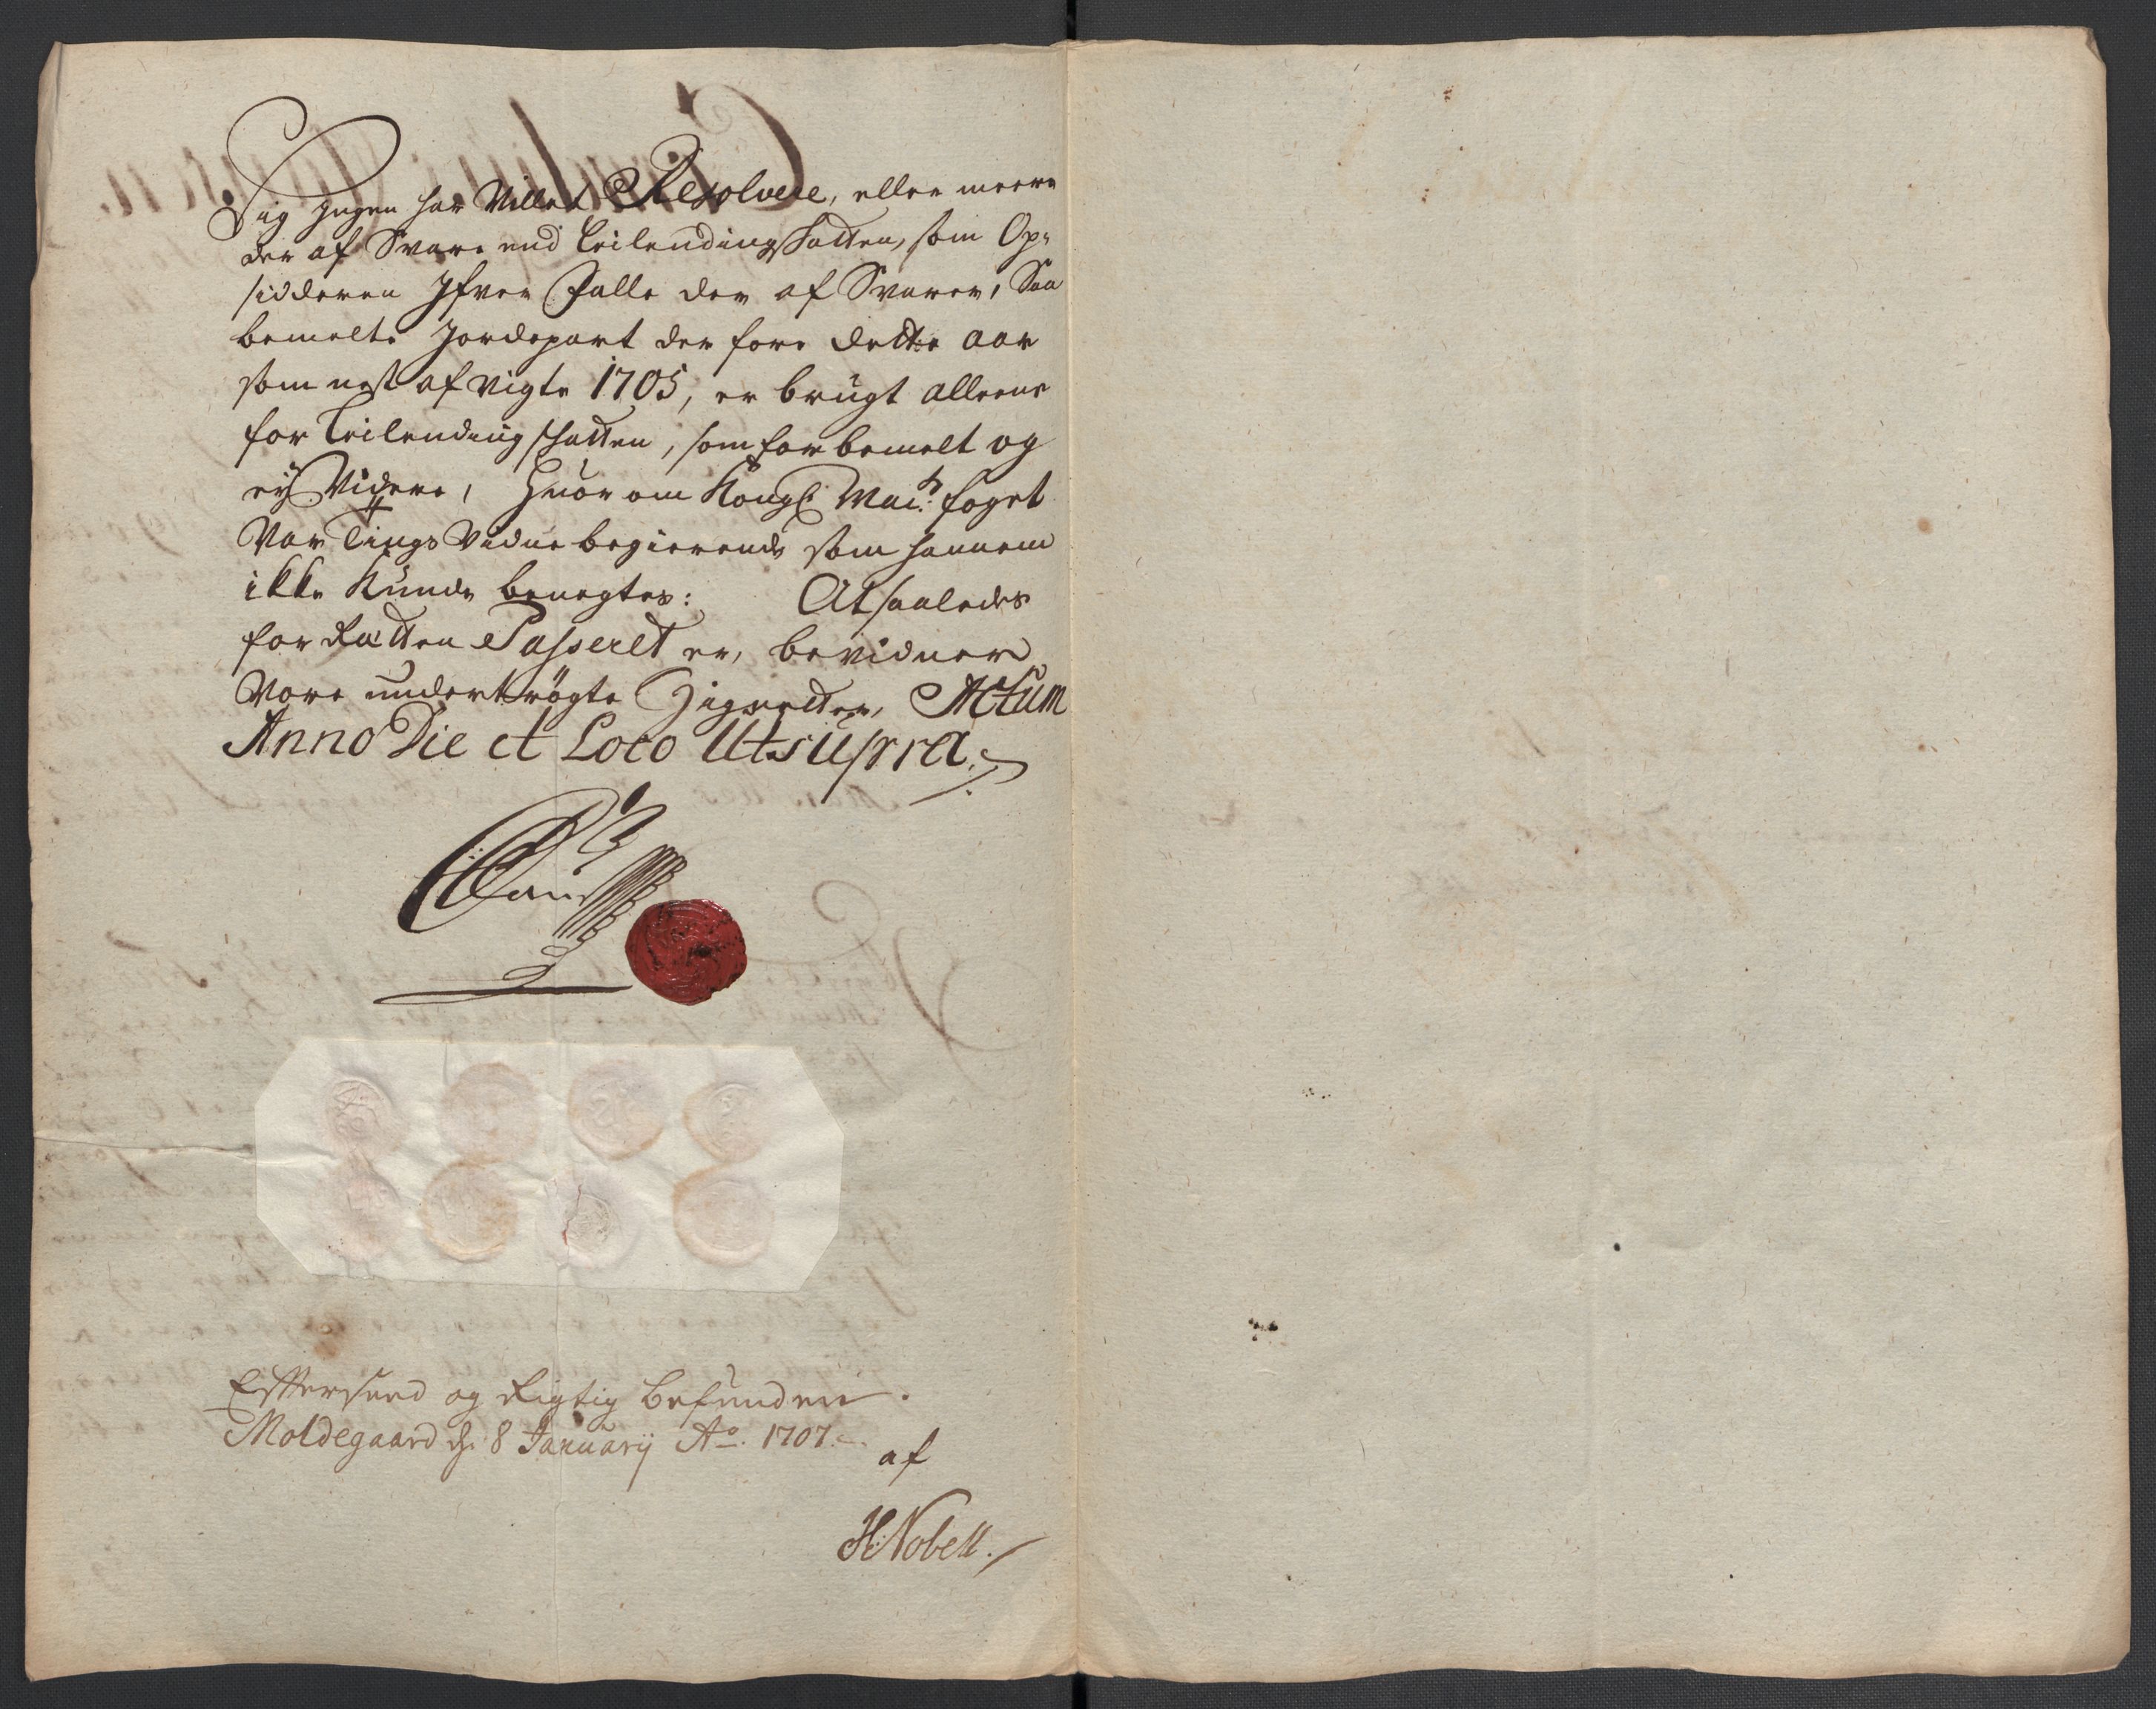 Sig Ingen har Villet Resolvere, eller meere
der af Svare end Leilendingschatten, som Op-
sidderen Ifver Falle der af Svarer, Saa
bemelte Jordepart der fore dette aar
som nest afvigte 1705, er brugt alleene
for Leilendingschatten, som forbemelt og
eij Videre, Huorom Kongl: Mai:ts foget
Var Tings Vidne begierende som hannem
ikke Kunde benegtes: At saaledes
for Rætten Passeret er, bevidner
Vore undertrögte Zigneter, Actum
Anno Die et Loco Utsupra.
Efterseed og Rigtig befunden.
Moldegaard d. 8 Januarij Ao. 1707.
af
H: Nobell.